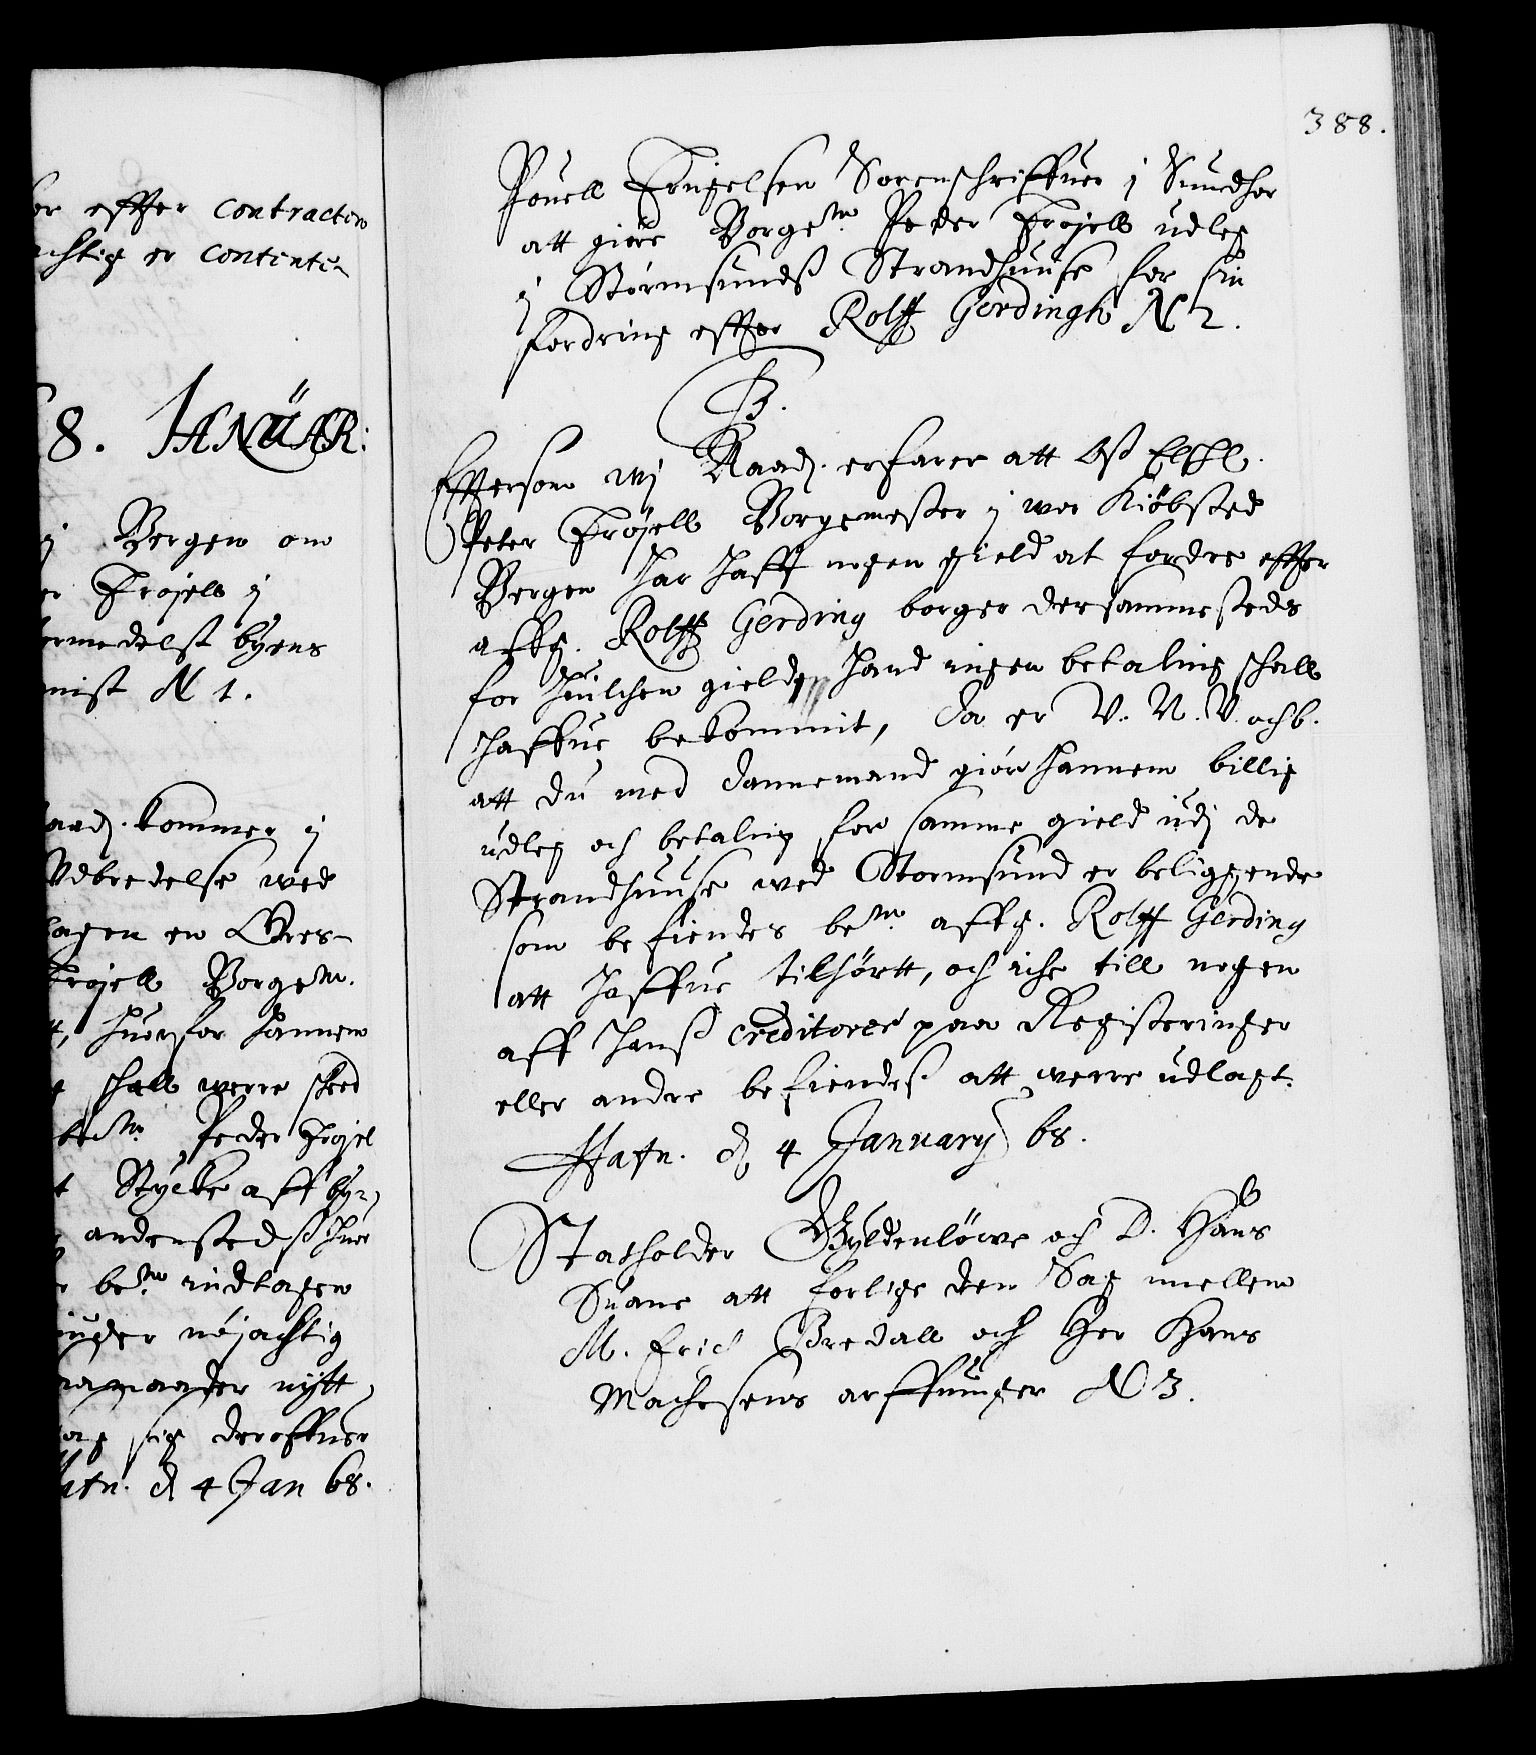 er effter contracten
achtig er contenti-
8. IANUAR:
j Bergen om
er Frøjell j
ermedelst byens
mist N 1.
aadj. kommer j
Vdbredelse wed
tagen en Gres-
Frøjell Borgem.
t, huorfor hannem
e schall werre skeed
bem. Peder Frøjel
t Stycke aff by-
andensteds huor
bem. indtagen
inger nøjachtig
nytt
sig deroffuer
Hafn. d 4 Jan 68.
388.
Pouell Engelsen Sorenschriffuer j Sundhor
att giøre Borgem. Peder Frøjell udleg
j Stormsundß Strandhuuse for sin
fordring effter Rolff Gerdingh N 2.
F3.
Effersom wj Naadj. erfarer att Oß Elschl.
Peter Frøjell Borgemester j wor Kiøbsted
Bergen har hafft nogen gield at fordre effter
affg. Rolff Gerding borger dersammesteds
for huilchen gield hand ingen betaling schall
haffue bekommit, da er V. N. V. och b.
att du med dannemænd giør hannem billig
udleg och betaling for samme gield udj de
Strandhuuse wed Stormsund er beliggende
som befindes bem. affg. Rolff Gerding
att haffue tilhørtt, och iche till nogen
aff hanß Creditorer paa Registeringer
eller andre befindeß att werre udlagt.
Hafn. d 4 January 68.
Statholder Gyldenløwe och D. Hans
Suane att forlige den Sag mellem
M. Erich Bredall och Her Hans
Machesens arffuinger N 3.